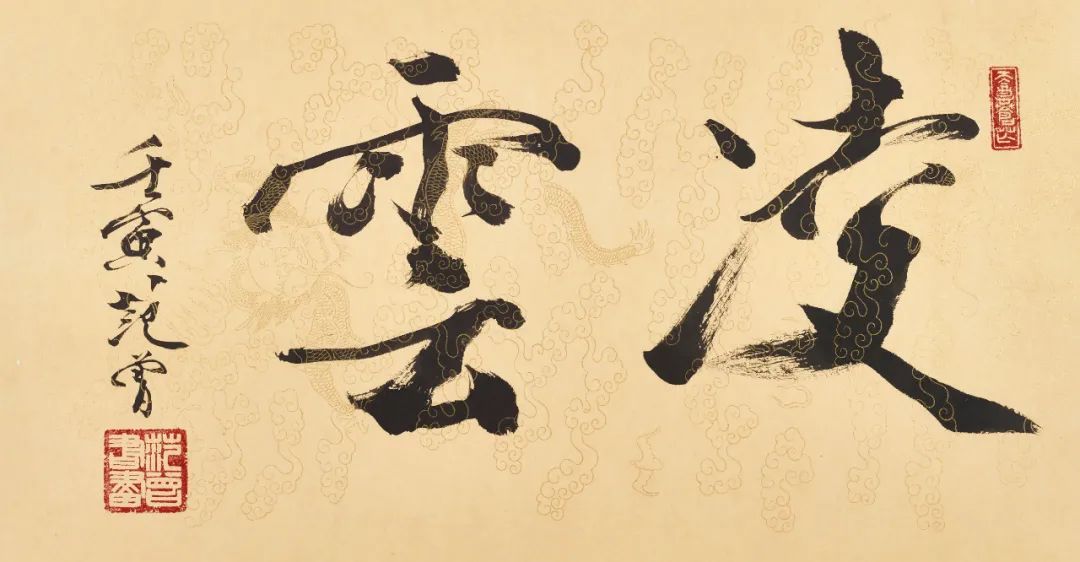 凌雲
壬寅 范曾
范曾
書畫